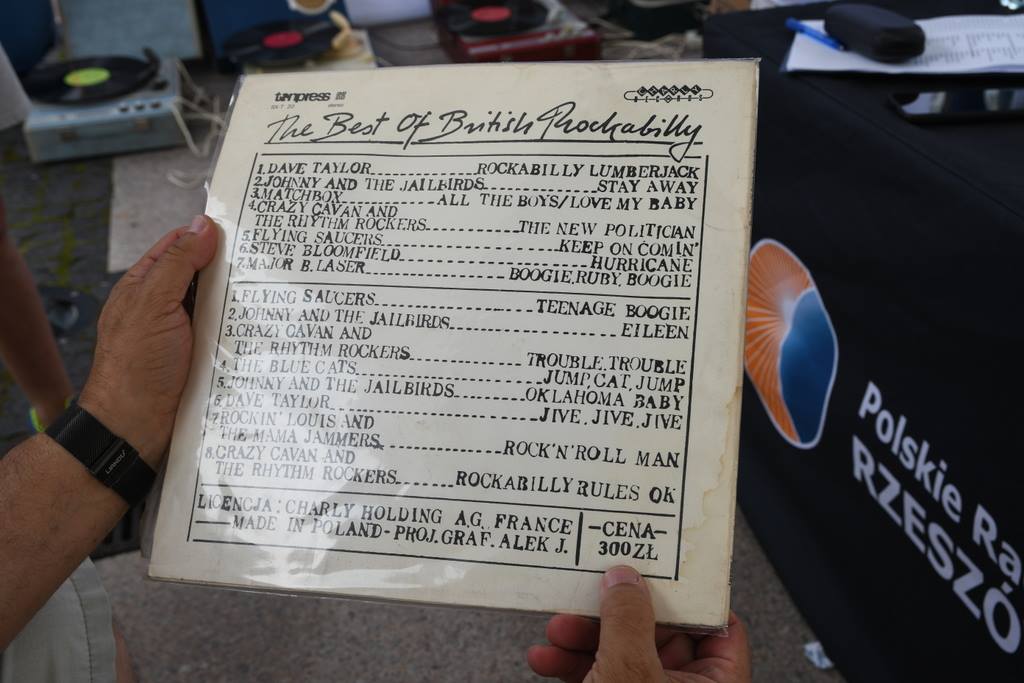 tonpress
SX-T 20 stereo
CHARLY RECORDS
The Best Of British Rockabilly
1.DAVE TAYLOR ROCKABILLY LUMBERJACK
2.JOHNNY AND THE JAILBIRDS STAY AWAY
3.MATCHBOX ALL THE BOYS/LOVE MY BABY
4.CRAZY CAVAN AND
THE RHYTHM ROCKERS THE NEW POLITICIAN
5.FLYING SAUCERS KEEP ON COMIN'
6.STEVE BLOOMFIELD HURRICANE
7.MAJOR B.LASER BOOGIE,RUBY, BOOGIE
1.FLYING SAUCERS TEENAGE BOOGIE
2.JOHNNY AND THE JAILBIRDS EILEEN
3.CRAZY CAVAN AND
THE RHYTHM ROCKERS TROUBLE,TROUBLE
4.THE BLUE CATS JUMP,CAT,JUMP
5.JOHNNY AND THE JAILBIRDS OKLAHOMA BABY
6.DAVE TAYLOR JIVE, JIVE, JIVE
7.ROCKIN' LOUIS AND
THE MAMA JAMMERS ROCK'N'ROLL MAN
8.CRAZY CAVAN AND
THE RHYTHM ROCKERS ROCKABILLY RULES OK
LICENCJA: CHARLY HOLDING A.G. FRANCE
MADE IN POLAND-PROJ.GRAF. ALEK J.
-CENA-
300ZŁ
Polskie Ra
RZESZÓ